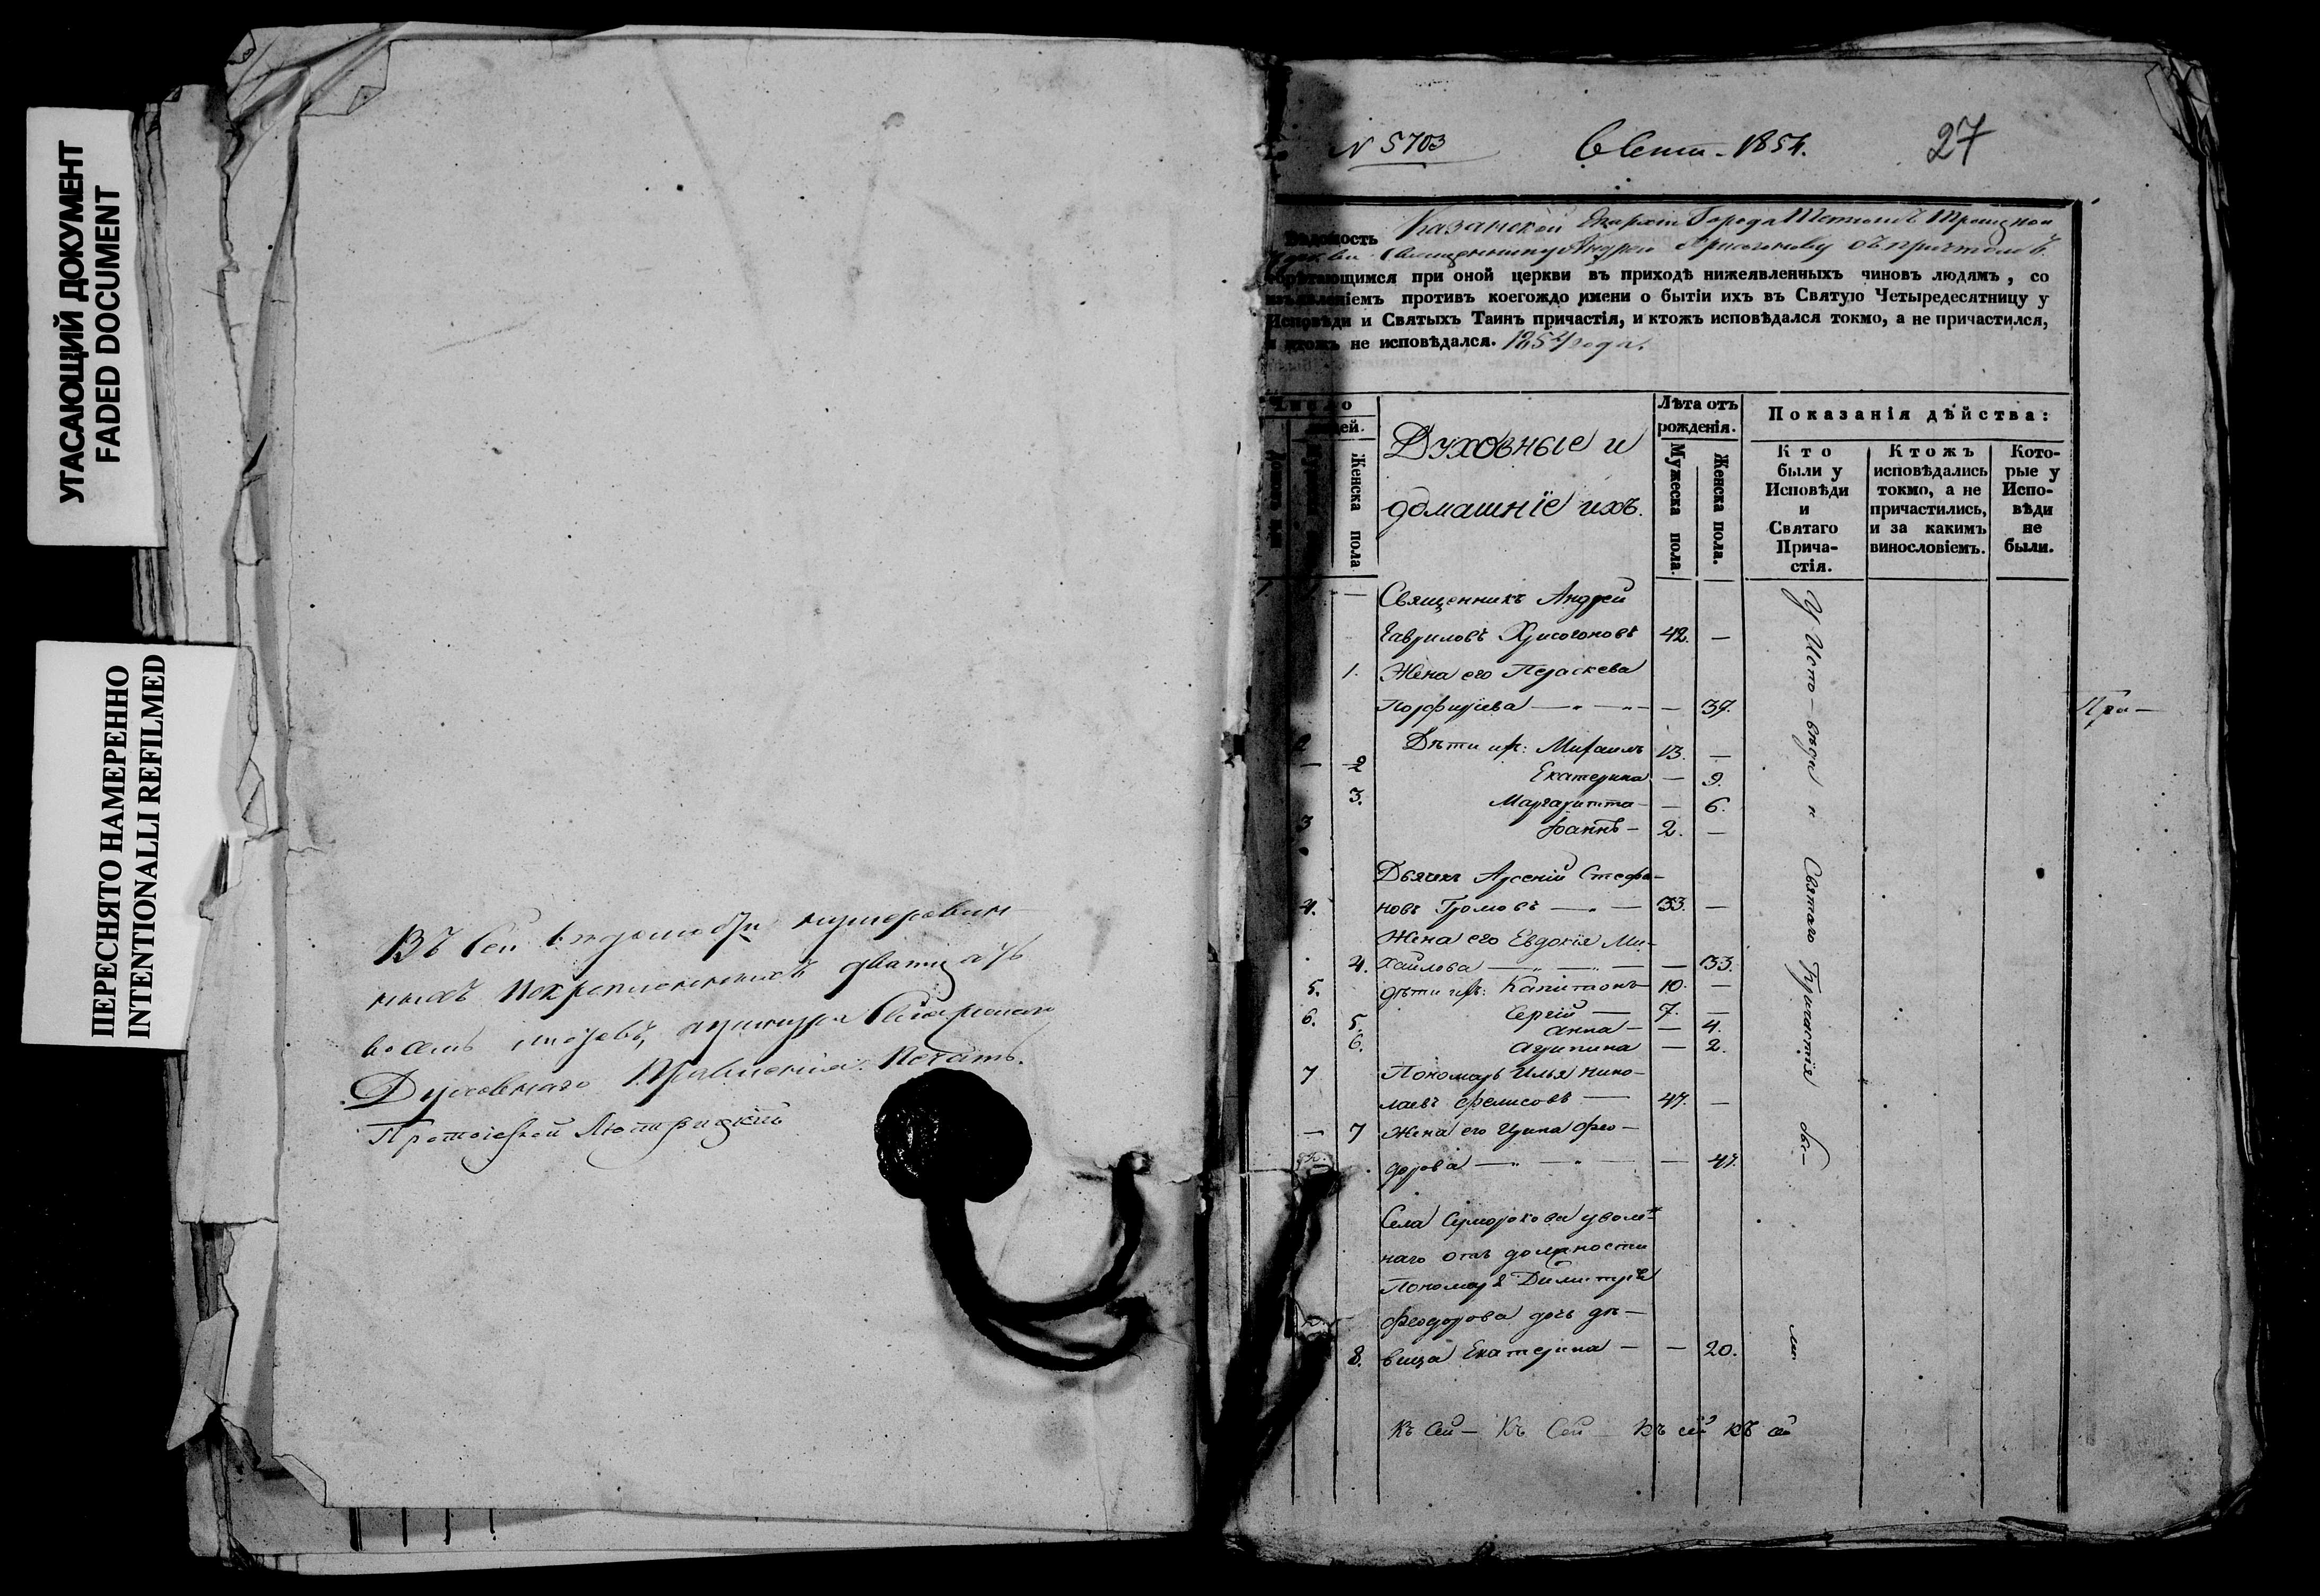 УГАСАЮЩИЙ ДОКУМЕНТ
FADED DOCUMENT
ПЕРЕСНЯТО НАМЕРЕННО
INTENTIONALLI REFILMED
Въ сей
двадцать
восемь листовъ,
Духовнаго Правленія Печать.
Протоіерей
N 5703
1854.
27
Вѣдомость Казанской Епархіи Города Тетюшъ Троицкой
Церкви Священника Андрея Хрисогонова съ причтомъ
обрѣтающимся при оной церкви въ приходѣ нижеявленныхъ чиновъ людямъ, со
изъявленіемъ противъ коегождо имени о бытіи ихъ въ Святую Четыредесятницу у
Исповѣди и Святыхъ Таинъ причастія, и ктожъ исповѣдался токмо, а не причастился,
и ктожъ не исповѣдался. 1854 года.
Число
людей.
Мужеска пола
Женска пола
Духовные и
домашніе ихъ.
Лѣта отъ
рожденія.
Мужеска пола.
Женска пола.
Показанія дѣйства:
Кто
были у
Исповѣди
и
Святаго
Прича-
стія.
Ктожъ
исповѣдались
токмо, а не
причастились,
и за какимъ
винословіемъ.
Кото-
рые у
Испо-
вѣди
не
были.
— Священникъ Андрей
Гавриловъ Хрисогоновъ 42. —
1. Жена его Параскева
Порфирьева — „ — „ — — 37.
2 Дѣти ихъ: Михаилъ 13. —
— 2 Екатерина — 9.
3. Маргаритта — — 6.
3 Іоаннъ — 2. —
Дьячекъ Арсеній Стефа-
4. новъ Громовъ — „ — 33. —
Жена его Евдокія Ми-
4. хайлова — „ — „ — — 33.
5. Дѣти ихъ: Капитонъ — 10. —
6. Сергій — 7. —
5. Анна — — 4.
6. Агрипина — 2.
7 Пономарь Илья Нико-
лаевъ Фелисовъ — 47. —
— 7 Жена его Ирина Фео-
дорова — „ — „ — — 47.
Села Суморокова уволен-
наго отъ должности
Пономаря Димитрія
Феодорова дочь дѣ-
8. вица Екатерина — — 20.
У Испо-вѣди и Святаго Причастія бы-ли
Пра—
Къ сей — Къ сей — Къ сей къ сей